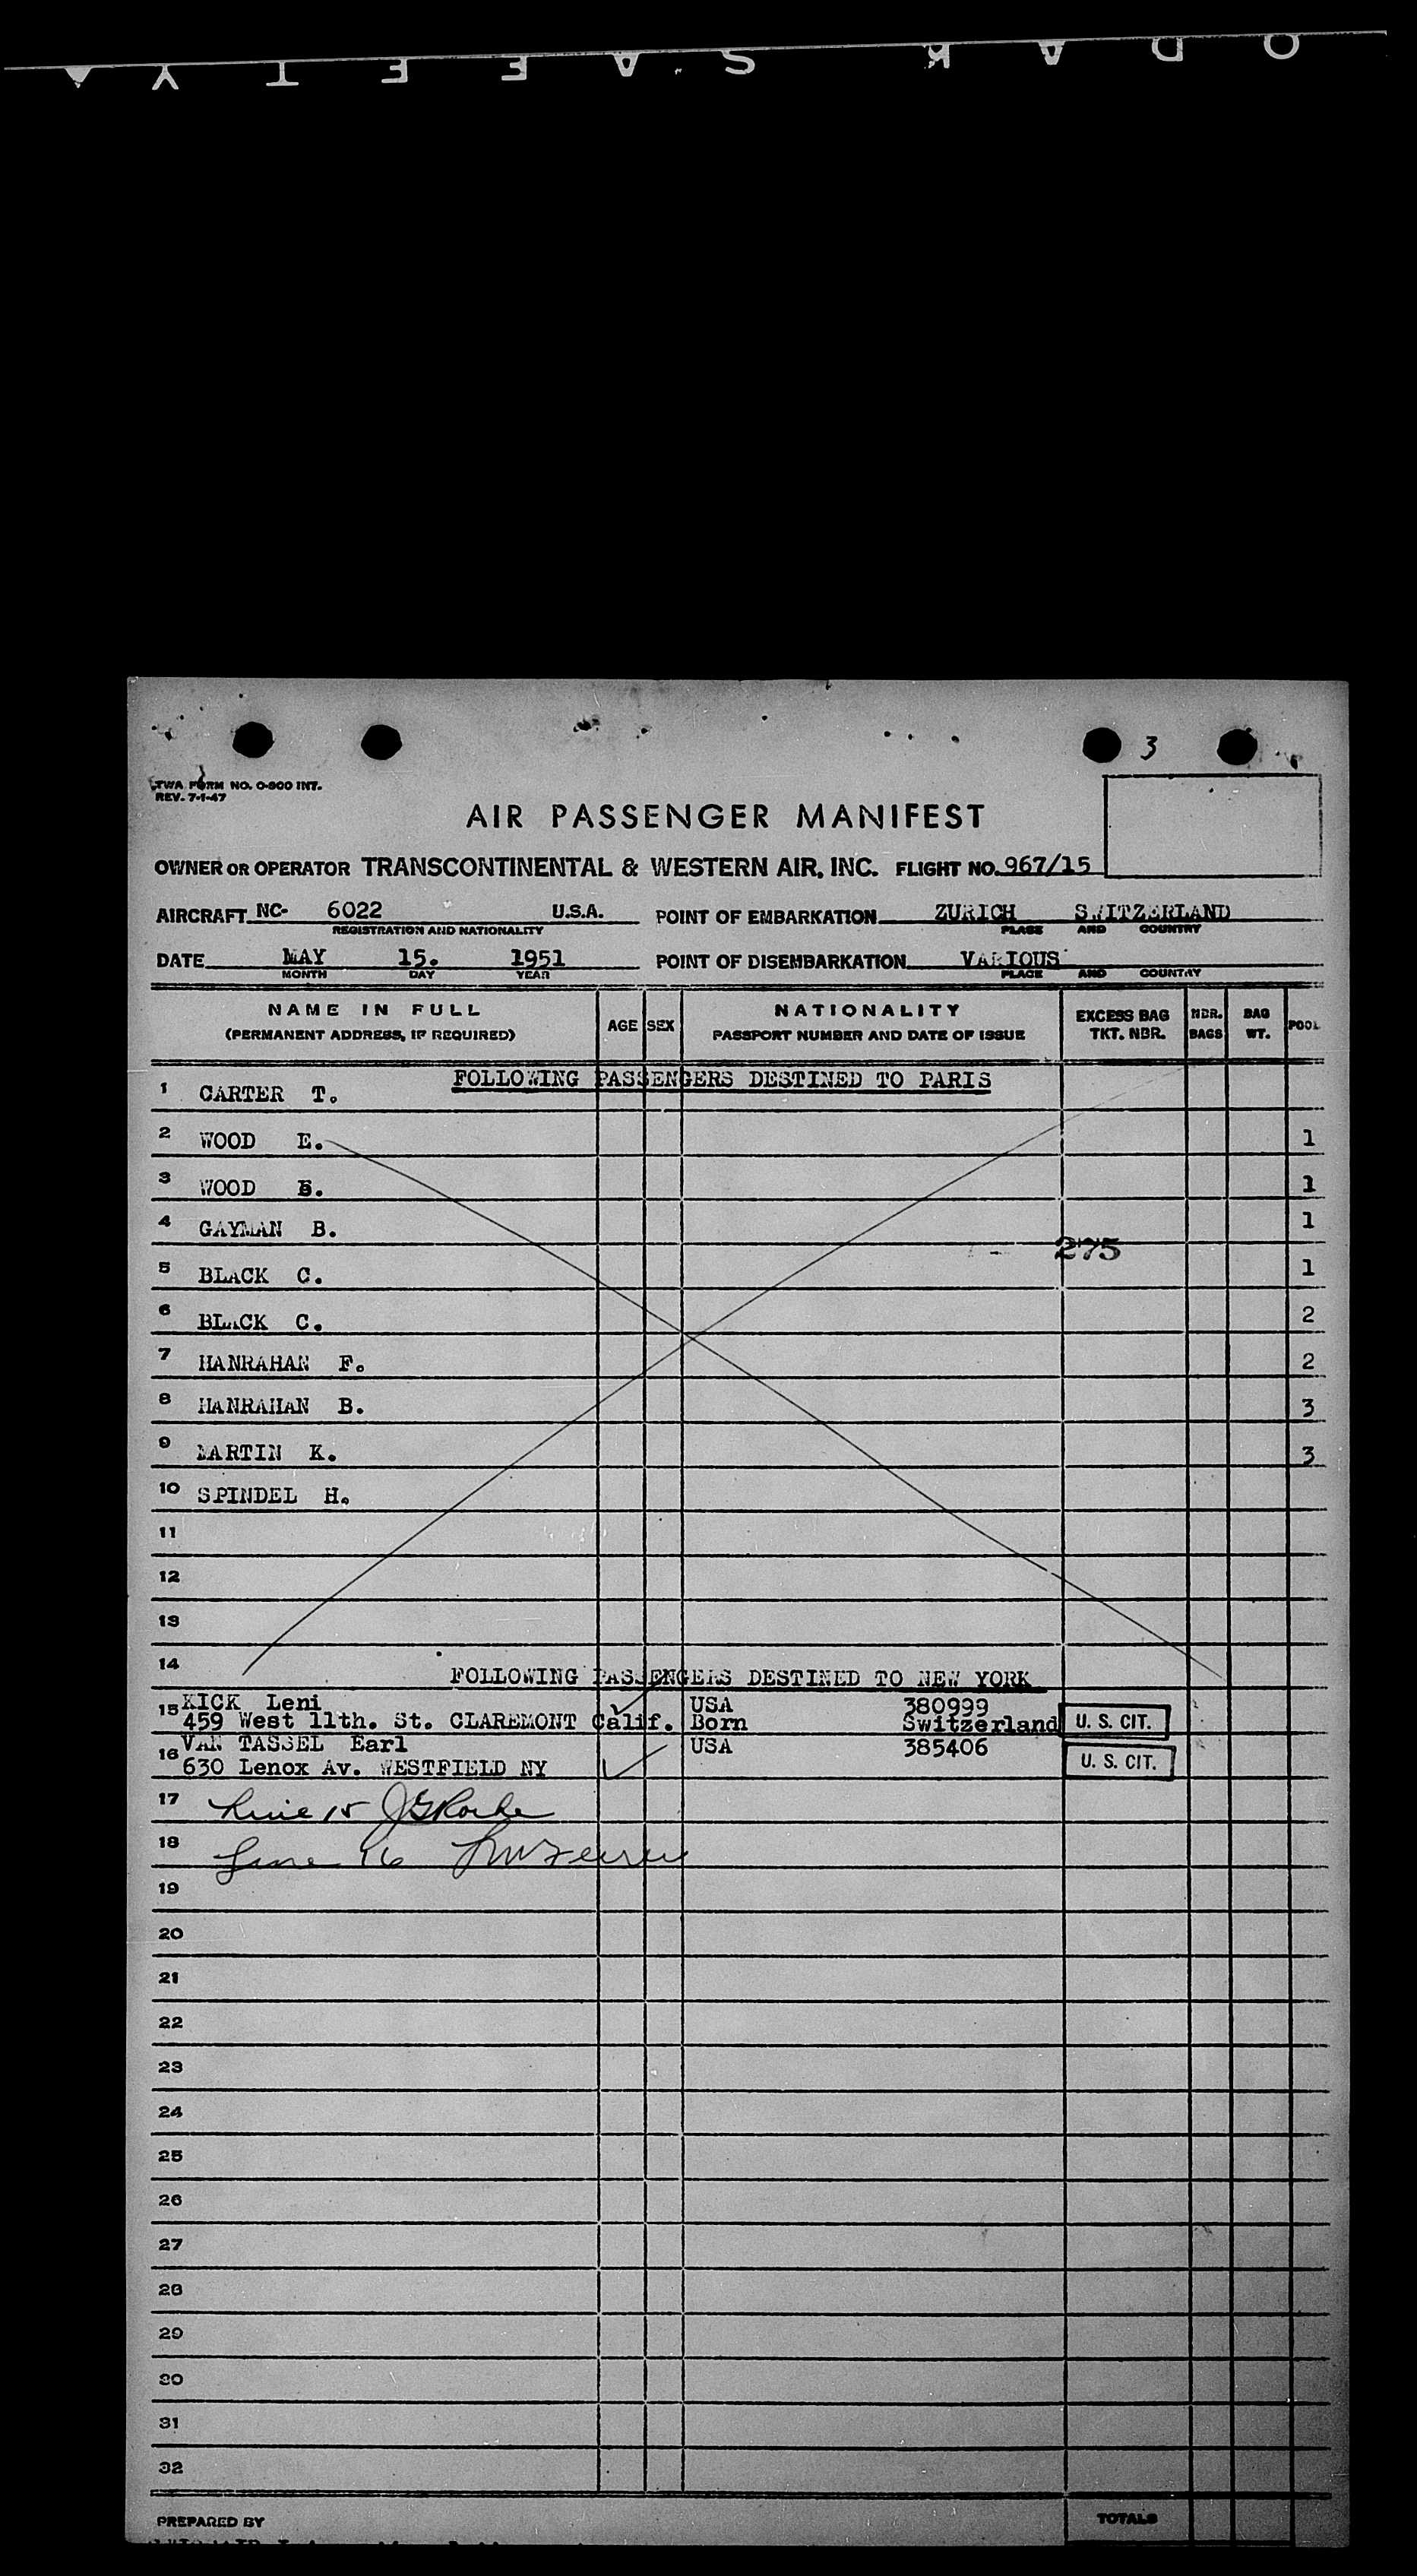 KODAK SAFETY
3
TWA FORM NO. O-800 INT.
REV. 7-1-47
AIR PASSENGER MANIFEST
OWNER OR OPERATOR TRANSCONTINENTAL & WESTERN AIR, INC. FLIGHT NO. 967/15
AIRCRAFT NC- 6022 U.S.A. POINT OF EMBARKATION ZURICH SWITZERLAND
REGISTRATION AND NATIONALITY PLACE AND COUNTRY
DATE MAY 15. 1951 POINT OF DISEMBARKATION VARIOUS
MONTH DAY YEAR PLACE AND COUNTRY
NAME IN FULL AGE SEX NATIONALITY EXCESS BAG NBR. BAG POOL
(PERMANENT ADDRESS, IF REQUIRED) PASSPORT NUMBER AND DATE OF ISSUE TKT. NBR. BAGS WT.
FOLLOWING PASSENGERS DESTINED TO PARIS
1 CARTER T.
2 WOOD E. 1
3 WOOD 1
4 GAYMAN B. 1
275
5 BLACK C. 1
6 BLACK C. 2
7 HANRAHAN F. 2
8 HANRAHAN B. 3
9 MARTIN K. 3
10 SPINDEL H.
11
12
13
14 FOLLOWING PASSENGERS DESTINED TO NEW YORK
15 KICK Leni USA 380999
459 West 11th. St. CLAREMONT Calif. Born Switzerland U. S. CIT.
16 VAN TASSEL Earl USA 385406
630 Lenox Av. WESTFIELD NY U. S. CIT.
17 Line 15
18 Line 16
19
20
21
22
23
24
25
26
27
28
29
30
31
32
PREPARED BY TOTALS